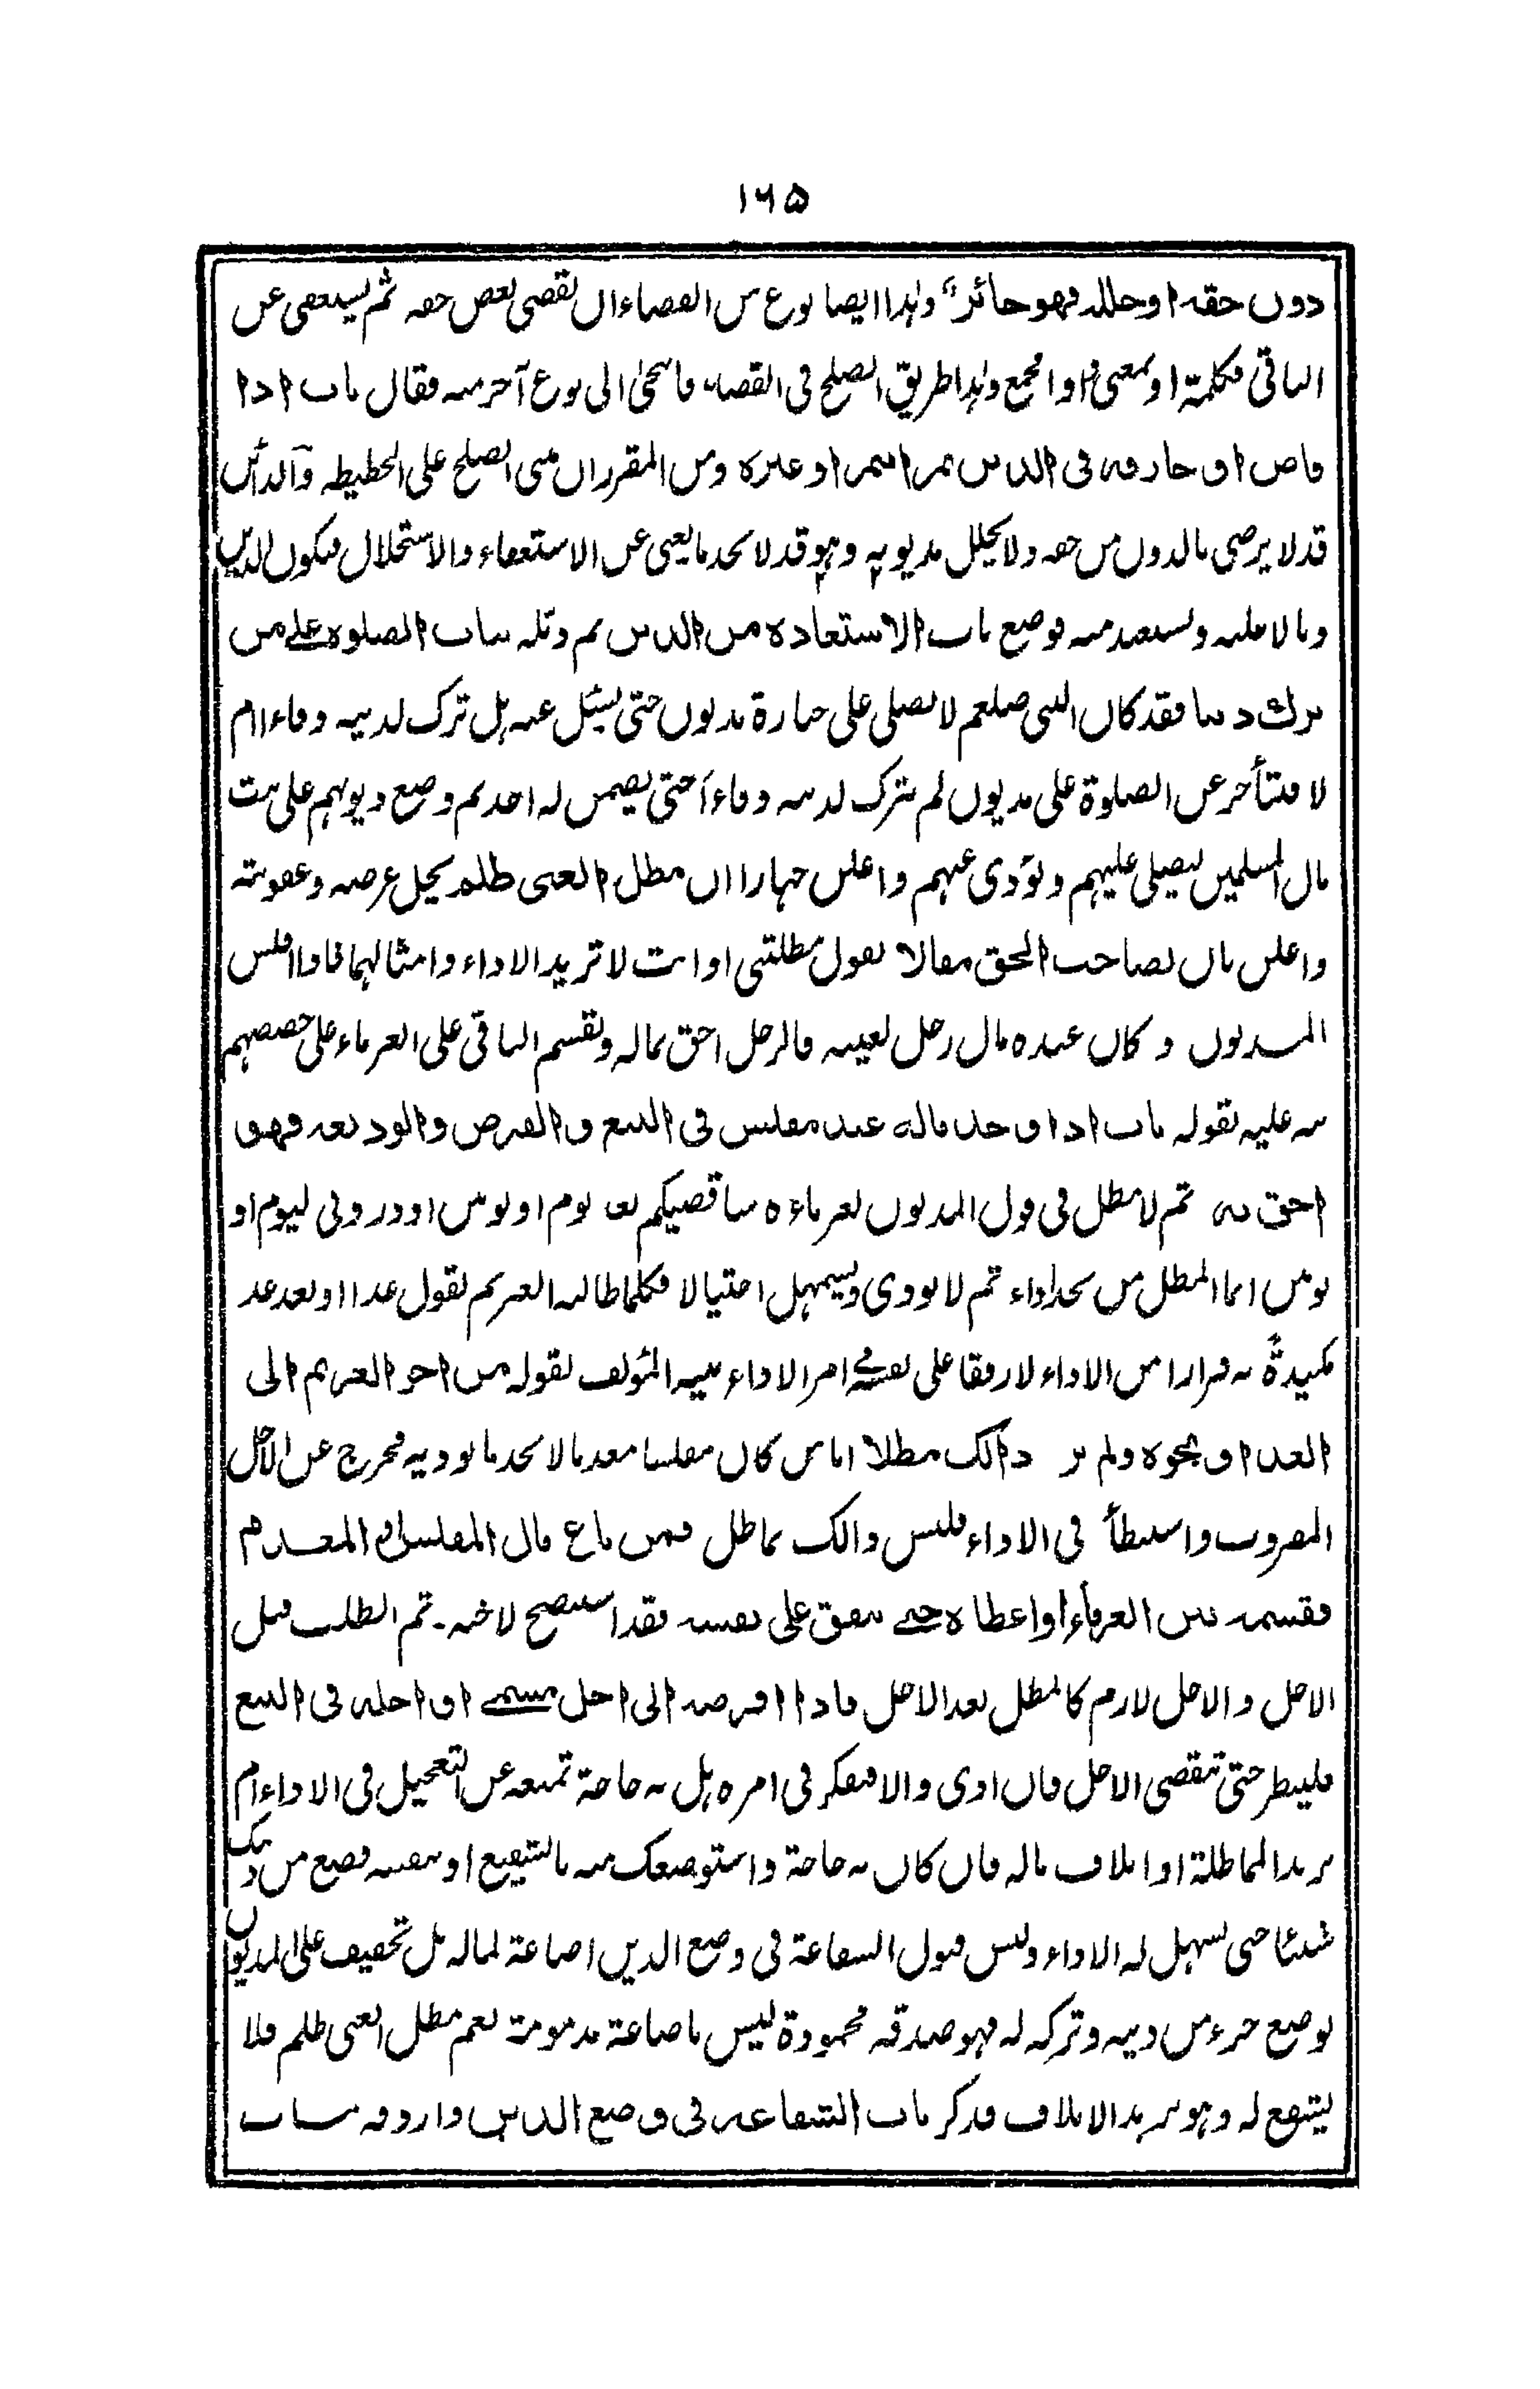 ١٦٥
دون حقه او حلله فهو جائز" وهذا ايضا نوع من القضاء ان يقضى بعض حقه ثم يستعفى عن
الباقى فكلمة او بمعنى واو الجمع وهذا طريق الصلح فى القضاء فاتجه الى نوع آخر منه فقال باب اذا
قاص او جازفه فى الدين تمرا بتمر او غيره ومن المقرر ان مبنى الصلح على الحطيطه وآلدائن
قد لا يرضى بالدون من حقه ولا يحلل مديونه وهو قد لا يجد ما يغنى عن الاستعفاء والاستحلال فيكون الدين
وبالا عليه ويستعيذ منه فوضع باب الاستعاذه من الدين ثم وتله بباب الصلوه على من
ترك دينا فقد كان النبى صلعم لا يصلى على جنازة مديون حتى يسئل عنه هل ترك لدينه وفاء ام
لا فيتأخر عن الصلوة على مديون لم يترك لدينه وفاءا حتى يضمن له احد ثم وضع ديونهم على بيت
مال المسلمين ليصلى عليهم ويؤدى عنهم واعلن جهارا ان مطل الغنى ظلم يحل عرضه وعقوبته
واعلن بان لصاحب الحق مقالا يقول مطلتنى او انت لا تريد الاداء وامثالهما فاذا افلس
المديون وكان عنده مال رجل بعينه فالرجل احق بماله ويقسم الباقى على الغرماء على حصصهم
نبه عليه بقوله باب اذا وجد ماله عند مفلس فى البيع والقرض والوديعه فهو
احق به ثم لا مطل فى قول المديون لغرماءه ساقضيكم بعد يوم او يومين او ذرونى ليوم او
يومين انما المطل من يجد اداء ثم لا يؤدى ويستمهل احتيالا فكلما طالبه الغريم يقول غدا او بعد غد
مكيدة به فرارا من الاداء لا رفقا على نفسه فى امر الاداء نبه المؤلف بقوله من اخر الغريم الى
الغد او نحوه ولم ير ذالك مطلا اما من كان مفلسا معدما لا يجد ما يؤديه فخرج عن الاجل
المضروب واستبطأ فى الاداء فليس ذالك بماطل فمن باع مال المفلس او المعدم
فقسمه بين الغرماء او اعطاه حتى ينفق على نفسه فقد استنصح لاخيه. ثم الطلب قبل
الاجل والاجل لازم كالمطل بعد الاجل فاذا اقرضه الى اجل مسمى او اجله فى البيع
فلينظر حتى تنقضى الاجل فان ادى والا فيفكر فى امره هل به حاجة تمنعه عن التعجيل فى الاداء ام
يريد المماطلة او اتلاف ماله فان كان به حاجة واستوضعك منه بالتشفيع او بنفسه فضع من دينك
شيئا حتى يسهل له الاداء وليس قبول الشفاعة فى وضع الدين اضاعة لماله بل تخفيف على المديون
بوضع جزء من دينه وتركه له فهو صدقه محمودة ليس باضاعة مذمومة نعم مطل الغنى ظلم فلا
يشفع له وهو يريد الاتلاف فذكر باب الشفاعه فى وضع الدين واردفه بباب